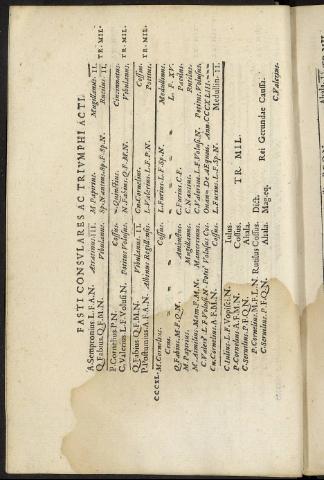 FASTI CONSVLARES AC TRIVMPHI ACTI.
A. Sempronius L.F.A.N. Atratinus III. M. Papirius. Mugillanus. II. TR. MIL.
Q. Fabius Q.F.M.N. Vibulanus. Sp. Nautius. Sp.F.Sp.N. Rutilus. II.
P. Cornelius P.N. Cossus. Quinctius. Cincinnatus. TR. MIL.
C. Valerius L.F. Volusi.N. Potitus Volusus. N. Fabius Q.F.M.N. Vibulanus.
Q. Fabius Q.F.M.N. Vibulanus. II. Cn. Cornelius. Cossus. TR. MIL.
P. Postumius. A.F.A.N. Albinus Regillensis. L. Valerius. L.F.P.N. Potitus.
CCCXL. M. Cornelius. Cossus. L. Furius. L.F.Sp.N. Medullinus.
Cens. L. F. XV.
Q. Fabius. M.F.Q.N. Ambustus. C. Furius C.F. Pacilus.
M. Papirius. Mugillanus. C. Nautius. Rutilus.
M. Aemilius. Mam.F.M.N. Mamercinus. C. Valerius. L.F. Volusi.N. Potitus Volusus.
C. Valeri' L.F. Volusi.N. Potit' Volusus Cos. Ouans. De AEqueis. Ann. CCCXLIII.
Cn. Cornelius. A.F.M.N. Cossus. L. Furius. L.F.Sp.N. Medullin. II.
C. Iulius. L.F. Vopisci.N. Iulus.
P. Cornelius. A.F.M.N. Cossus. TR. MIL.
C. Seruilius. P.F.Q.N. Ahala.
P. Cornelius. M.F.L.N. Rutilus Cossus. Dict. Rei Gerundae Caussa.
C. Seruilius. P.F.Q.N. Ahala. Mag. eq.
C. Valerius.